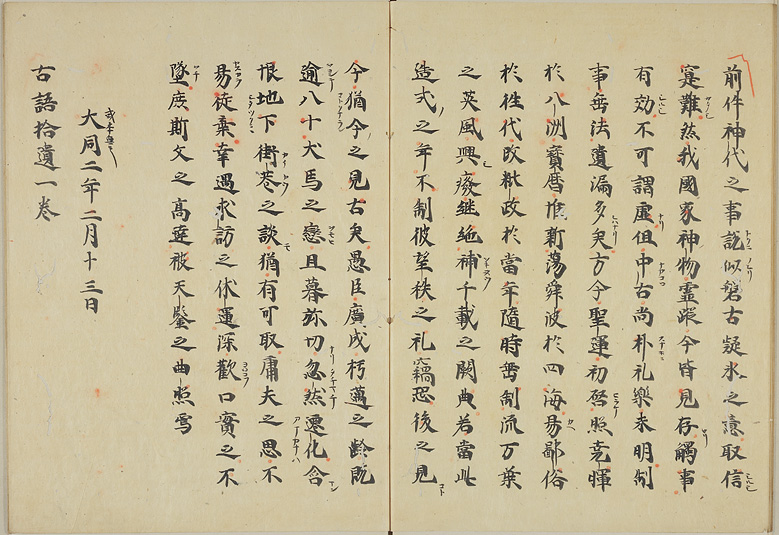 前件神代之事説似磐古疑氷之意取信
寔難然我國家神物霊蹤今皆見存觸事
有効不可謂虚但中古尚朴礼樂未明制
事無法遺漏多矣方今聖運初啓照堯暉
於八洲寶曆惟新蕩舜波於四海易鄙俗
於往代改粃政於當年隨時無制流万葉
之英風興癈継絶補千載之闕典若當此
造式之年不制彼望秩之礼竊恐後之見
今猶今之見古矣愚臣廣成朽邁之齢既
逾八十犬馬之戀旦暮弥切忽然遷化含
恨地下街巷之談猶有可取庸夫之思不
易徒棄幸遇求訪之休運深歡口實之不
墜庶斯文之高達被天鑒之曲照焉
大同二年二月十三日
古語拾遺一巻